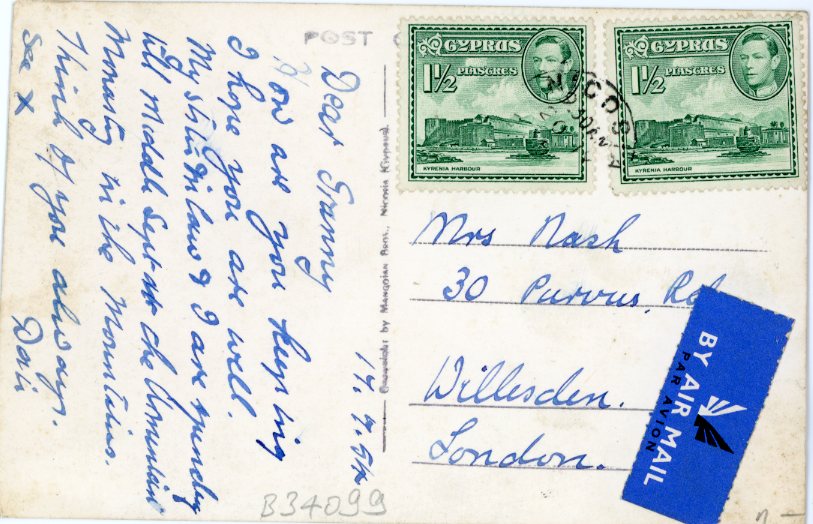 POST
17.7.54
Dear Granny
How are you keeping
I hope you are well.
My sister in law & I are spending
till Middle Sept at the Armenian
Monastry in the Mountains.
Think of you always.
Dali
See X
Copyright by Mangoian Bros., Nicosia (Cyprus).
CYPRUS
1½
PIASTRES
KYRENIA HARBOUR
CYPRUS
1½
PIASTRES
KYRENIA HARBOUR
NICOSIA
Mrs Nash
30 Purvus Rd
Willesden.
London.
BY AIR MAIL
PAR AVION
B34099